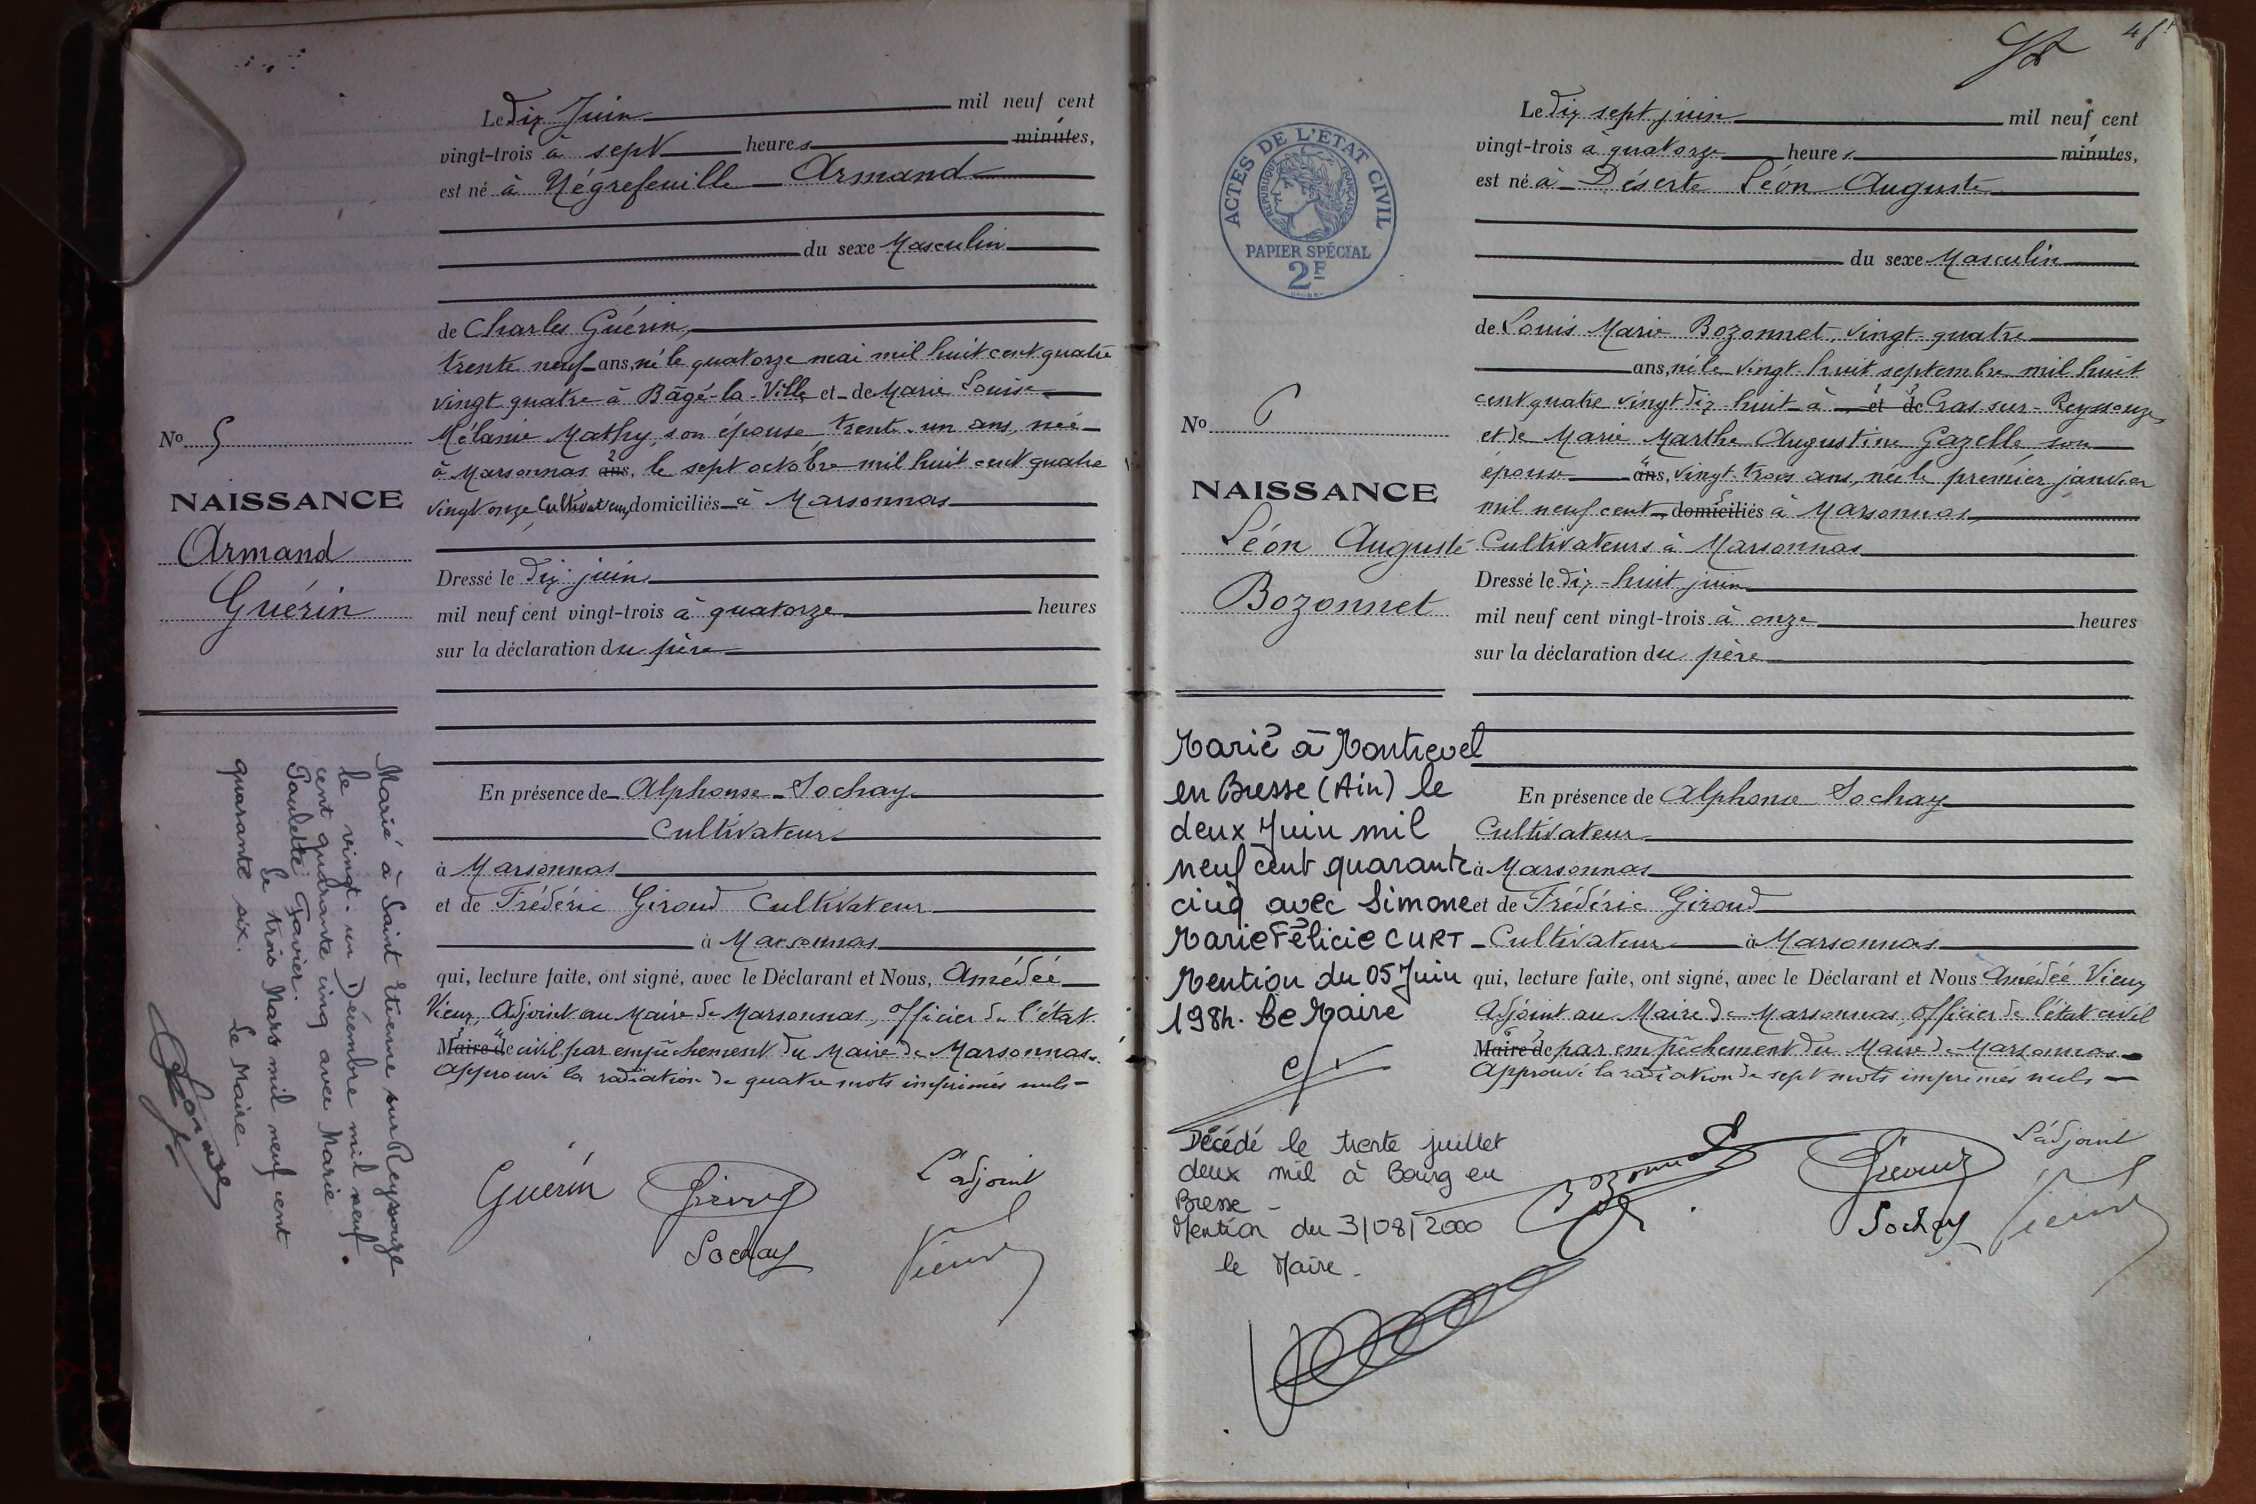 Le dix Juin mil neuf cent
vingt-trois à sept heures minutes,
est né à Négrefeuille Armand
du sexe Masculin
de Charles Guérin,
trente neuf ans, né le quatorze mai mil huit cent quatre
vingt quatre à Bâgé-la-Ville et de Marie Louise
Mélanie Mathy, son épouse, trente un ans, née
à Marsonnas ans, le sept octobre mil huit cent quatre
vingt onze Cultivateurs domiciliés à Marsonnas
Dressé le dix juin
mil neuf cent vingt-trois à quatorze heures
sur la déclaration du père
En présence de Alphonse Sochay
Cultivateur
à Marsonnas
et de Frédéric Giroud Cultivateur
à Marsonnas
qui, lecture faite, ont signé, avec le Déclarant et Nous, Amédée
Vieux, Adjoint au Maire de Marsonnas, officier de l'état
Maire de civil par empêchement du Maire de Marsonnas.
Approuvé la radiation de quatre mots imprimés nuls
Guérin
Sochay
L'adjoint
Vieux
No 5
NAISSANCE
Armand
Guérin
Marié à Saint Etienne sur Reyssouze
le vingt-un Décembre mil neuf
cent quarante cinq avec Marie
Paulette Favier.
le trois Mars mil neuf cent
quarante six. Le Maire
Le dix sept juin mil neuf cent
vingt-trois à quatorze heures minutes,
est né à Déserte Léon Auguste
du sexe Masculin
de Louis Marie Bozonnet, vingt quatre
ans, né le vingt huit septembre mil huit
cent quatre vingt dix huit à et de Cras-sur-Reyssouze
et de Marie Marthe Augustine Gazelle, son
épouse ans, vingt trois ans, née le premier janvier
mil neuf cent, domiciliés à Marsonnas
Cultivateurs à Marsonnas
Dressé le dix-huit juin
mil neuf cent vingt-trois à onze heures
sur la déclaration du père
En présence de Alphonse Sochay
Cultivateur
à Marsonnas
et de Frédéric Giroud
Cultivateur à Marsonnas
qui, lecture faite, ont signé, avec le Déclarant et Nous Amédée Vieux
Adjoint au Maire de Marsonnas, officier de l'état civil
Maire de par empêchement du Maire de Marsonnas
Approuvé la radiation de sept mots imprimés nuls
L'adjoint
Sochay
Vieux
ACTES DE L'ETAT CIVIL
REPUBLIQUE FRANÇAISE
PAPIER SPÉCIAL
2F
No 6
NAISSANCE
Léon Auguste
Bozonnet
Marié à Montrevel
en Bresse (Ain) le
deux Juin mil
neuf cent quarante
cinq avec Simone
Marie Félicie CURT
Mention du 05 Juin
1984. Le Maire
Décédé le trente juillet
deux mil à Bourg en
Bresse -
Mention du 3/08/2000
le Maire.